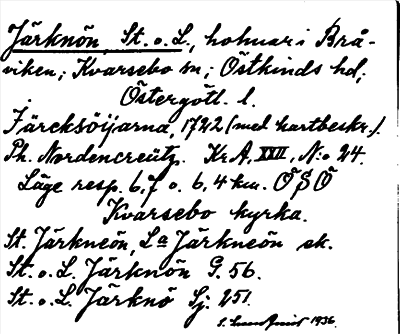 Järknön St. o. L., holmar i Brå-
viken; Kvarsebo sn; Östkinds hd;
Östergötl. l.
Järcksöijarna, 1722 (med kartbeskr.).
Ph. Nordencreütz. Kr.A. XXII, N:o 24.
Läge resp. 6,7 o. 6,4 km. ÖSÖ
Kvarsebo kyrka.
St. Järkneön, La Järkneön ek.
St. o. L. Järknön G. 56.
St. o. L. Järknö Sj. 251.
1936.